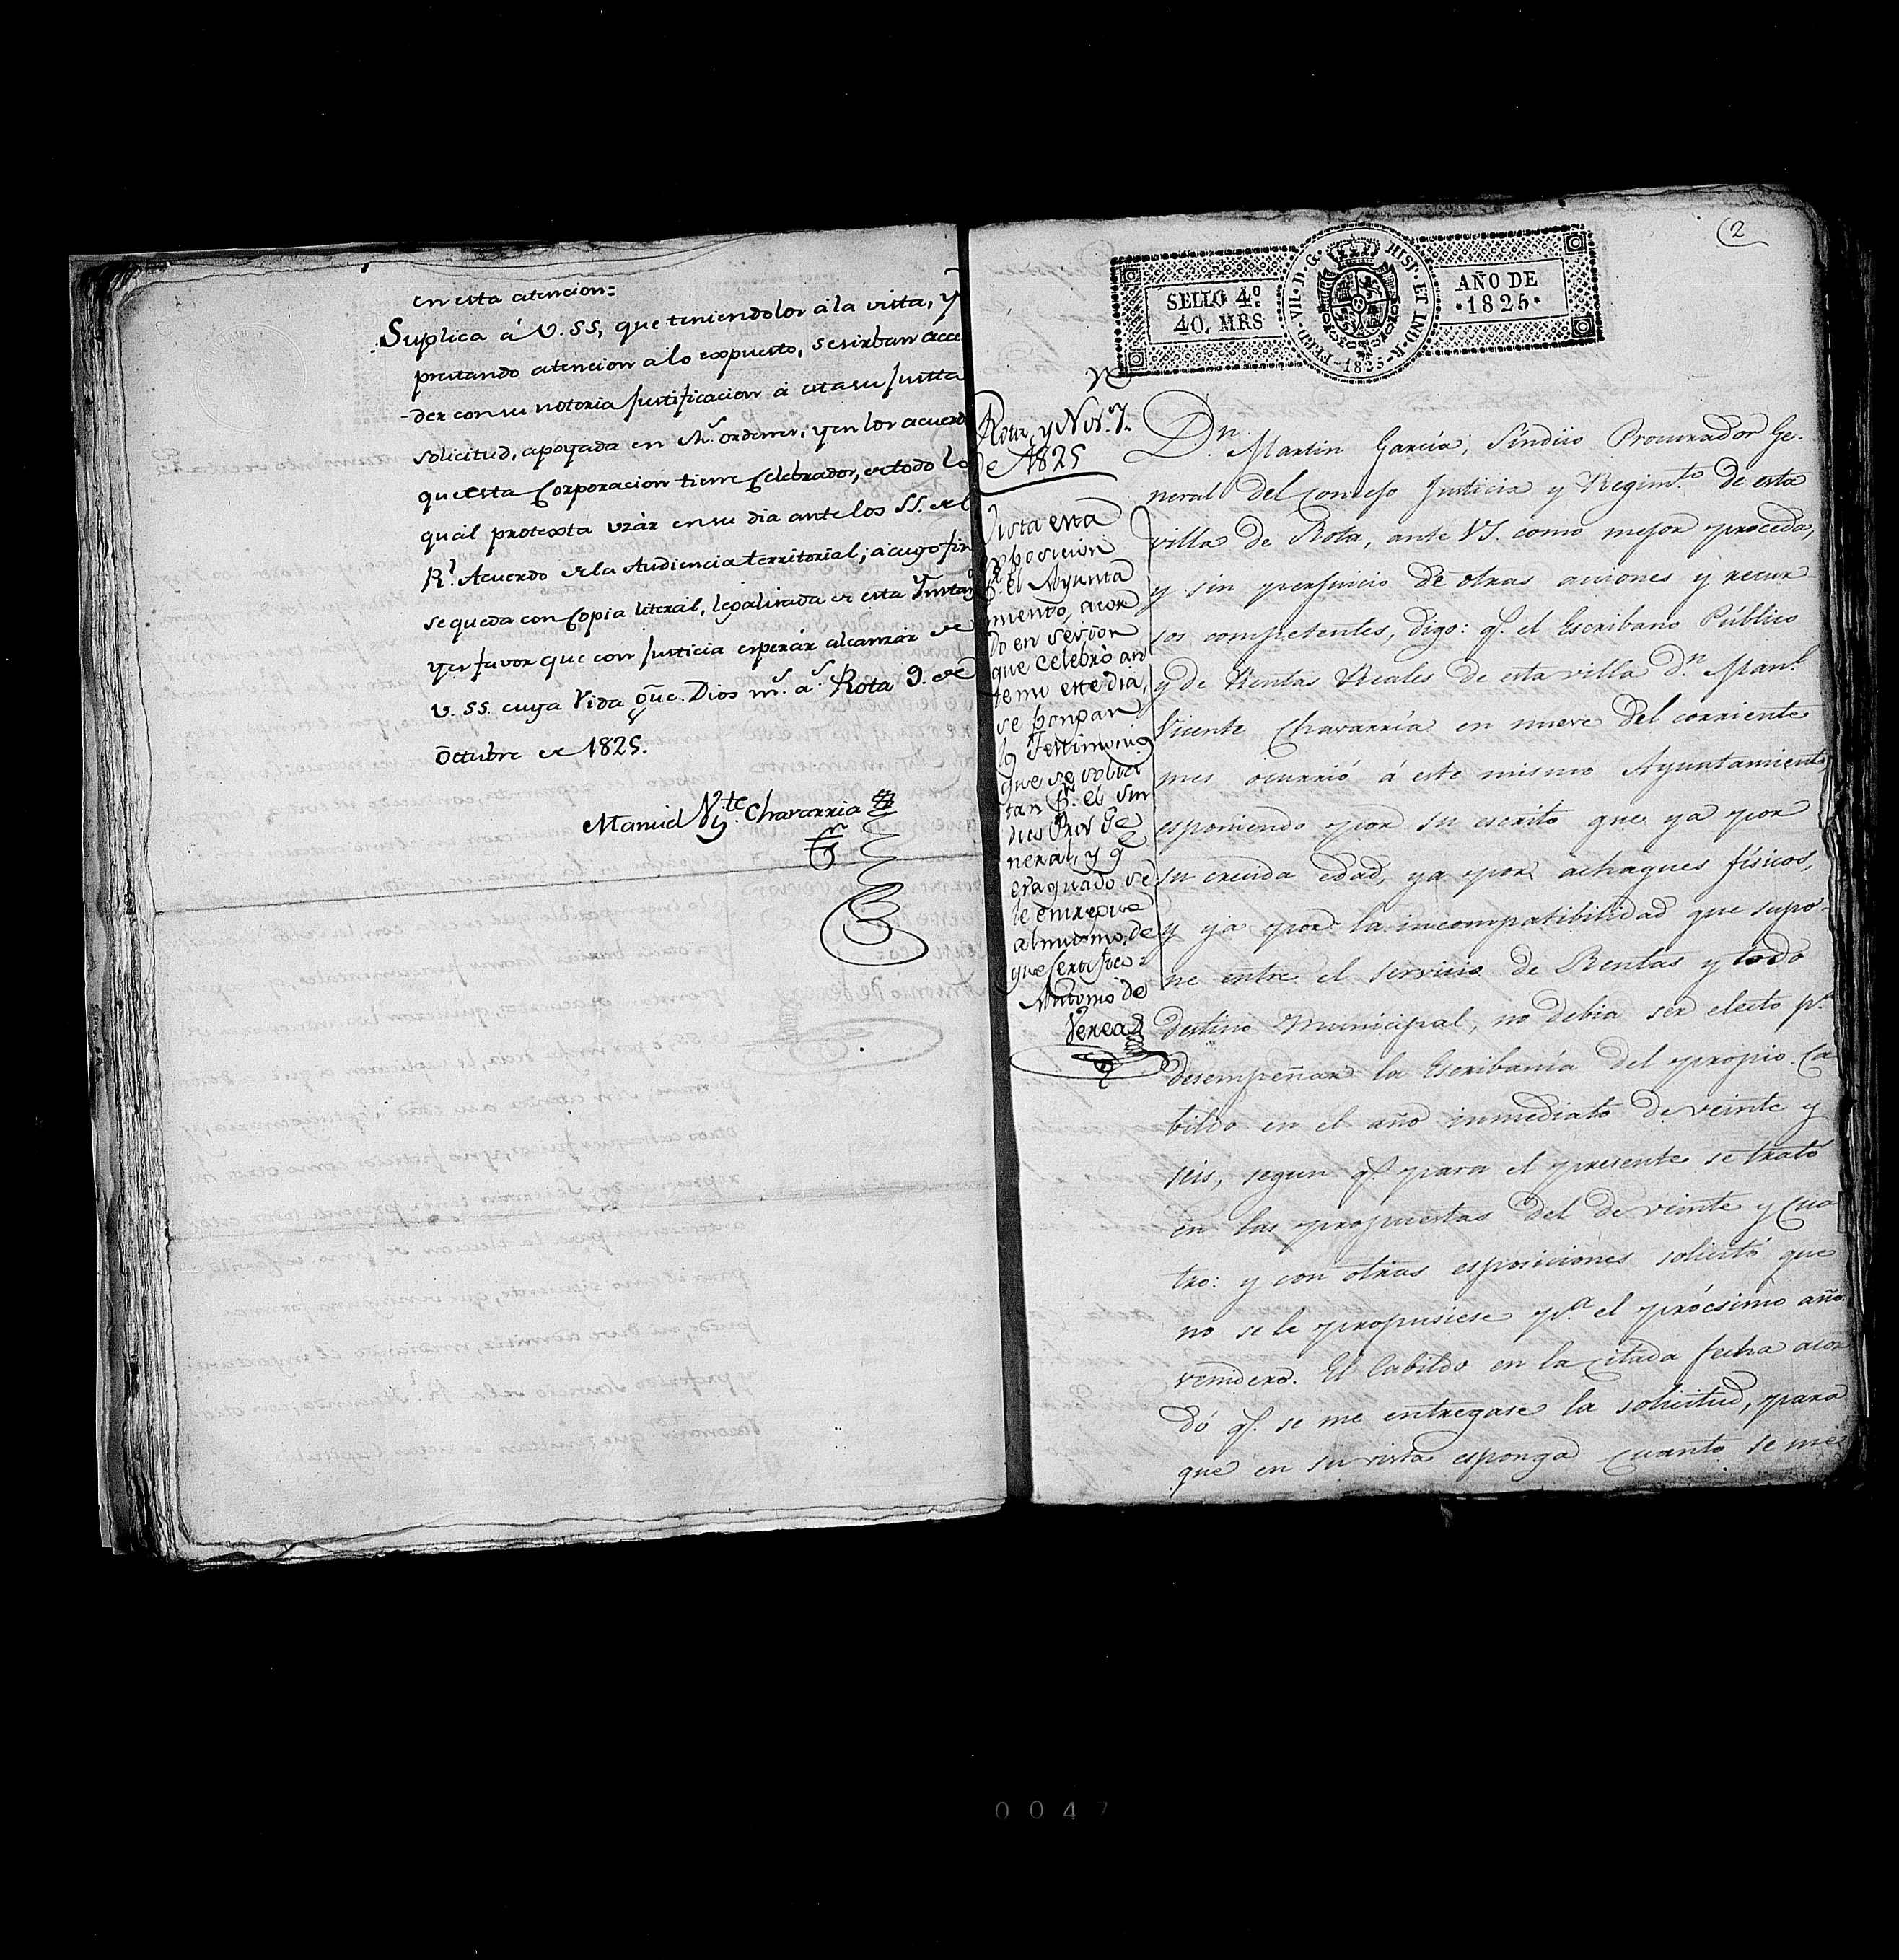 en esta atencion=
Suplica á V.SS, que teniendolos a la vista, y
prestando atencion a lo expuesto, se sirban acce
-der con su notoria justificacion á esta su justta
solicitud, apoyada en Rs. ordenes, y en los acuerd
que esta Corporacion tiene Celebrados, de todo lo
qual protexta uzár en su dia ante los SS. del
Rl. Acuerdo de la Audiencia territorial; a cuyo fin
se queda con Copia literal, legalizada de esta Ynstan
y es favor que con justicia esperár alcanzár de
V.SS. cuya Vida gũe. Dios ms. as. Rota 9. de
Octubre de 1825.
Manuel Vte. Chavarria
2
SELLO 4º
40. MRS
FERD·VII·D·G· HISP·ET IND·R· 1825
AÑO DE
·1825·
Rota, y Nov. 7.
de 1825
Vista esta
exposicion
pr. el Ayunta
miento, acor
dó en sesion
que celebró an
te mi este dia,
se pongan
los Testimonios
que se solici
tan pr. el Sin
dico Pror Ge
neral, y
evaquado se
le entregue
al mismo, de
que Certifico=
Antonio de
Verea
Dn. Martin García, Síndico Procurador Ge-
neral del Concejo Justicia y Regimto. de esta
villa de Rota, ante VS. como mejor proceda,
y sin perjuicio de otras acciones y recur-
sos competentes, digo: q. el Escribano Público
y de Rentas Reales de esta villa Dn. Manl.
Vicente Chavarría en nueve del corriente
mes ocurrió á este mismo Ayuntamiento,
esponiendo por su escrito que ya por
su crecida edad, ya por achaques físicos,
y ya por la incompatibilidad que supo-
ne entre el servicio de Rentas y todo
destino Municipal, no debia ser electo pa.
desempeñar la Escribanía del propio Ca
bildo en el año inmediato de veinte y
seis, segun q. para el presente se trató
en las propuestas del de veinte y cua
tro: y con otras esposiciones solicitó que
no se le propusiese pa. el prócsimo año
venidero. El Cabildo en la citada fecha acor
dó q. se me entregase la solicitud, para
que en su vista esponga cuanto se me
0047